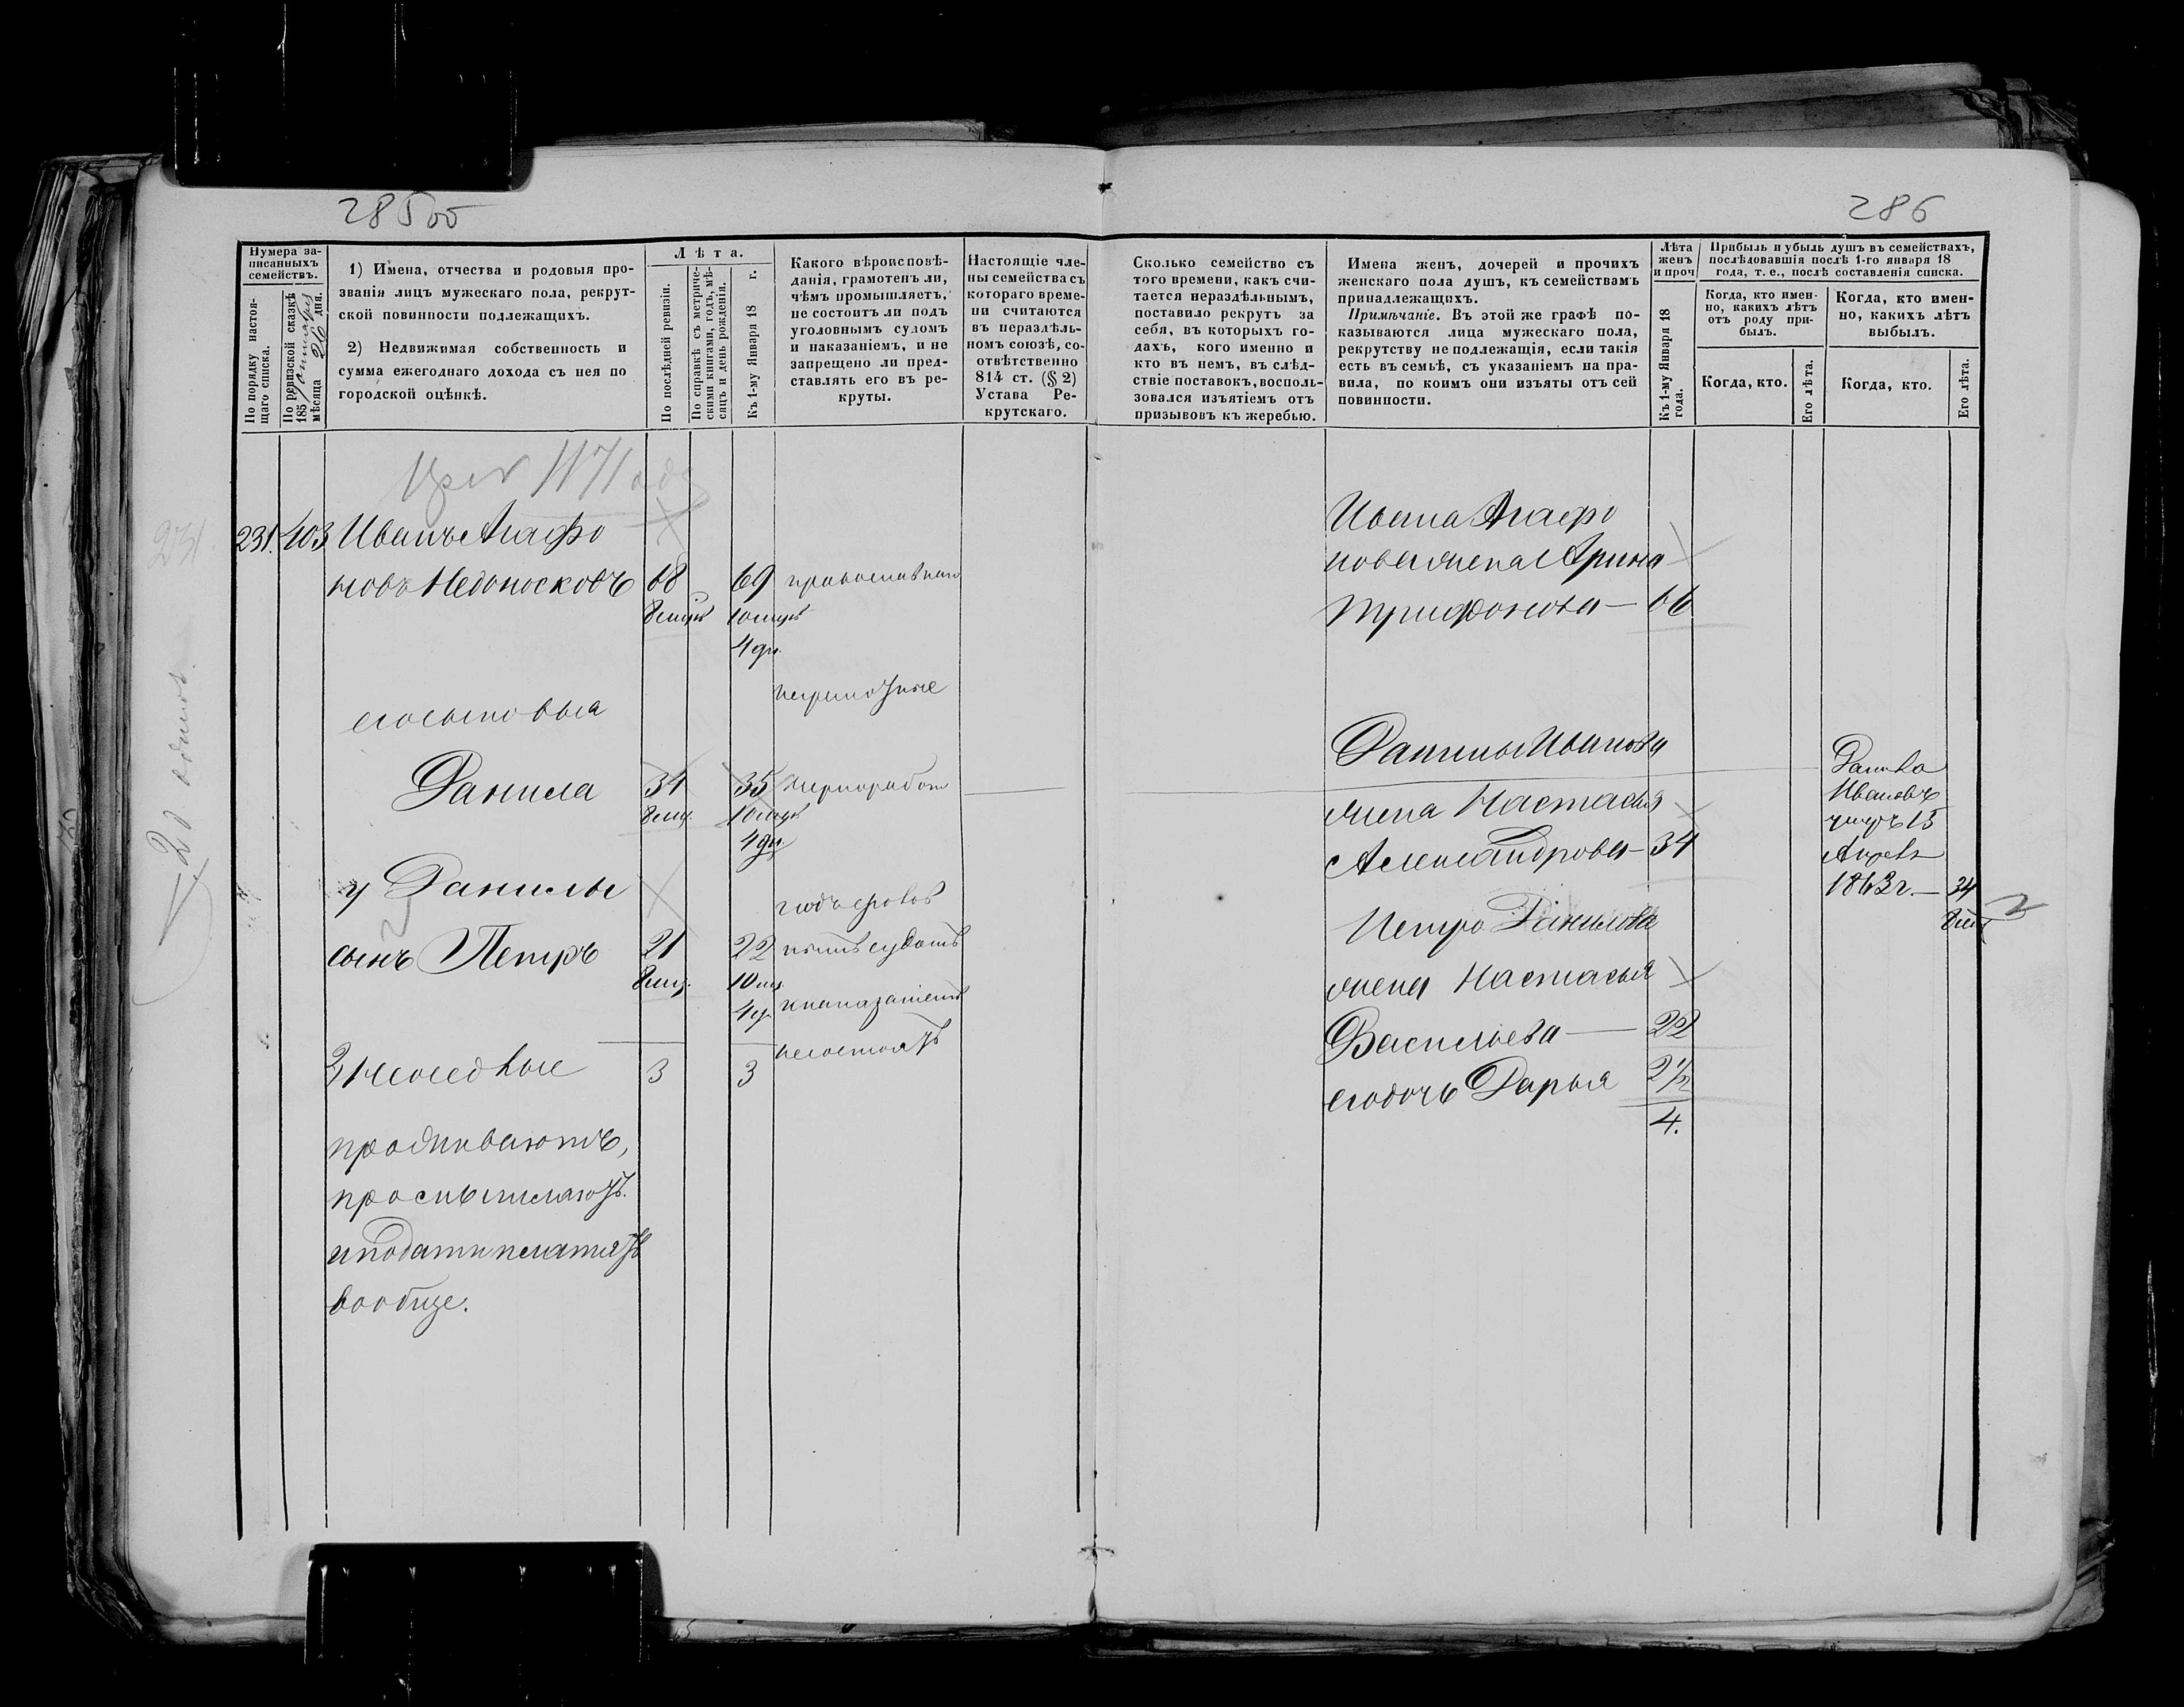 285об
286
Нумера записанныхъ семействъ.
По порядку настоящаго списка.
По ревизской сказкѣ 185 мѣсяца 26 дня.
1) Имена, отчества и родовыя прозванія лицъ мужескаго пола, рекрутской повинности подлежащихъ.
2) Недвижимая собственность и сумма ежегоднаго дохода съ нея по городской оцѣнкѣ.
Лѣта.
По послѣдней ревизіи.
По справкѣ съ метрическими книгами, годъ, мѣсяцъ и день рожденія.
Къ 1-му Января 18 г.
Какого вѣроисповѣданія, грамотенъ ли, чѣмъ промышляетъ, не состоитъ ли подъ уголовнымъ судомъ и наказаніемъ, и не запрещено ли представлять его въ рекруты.
Настоящіе члены семейства съ котораго времени считаются въ нераздѣльномъ союзѣ, соотвѣтственно 814 ст. (§ 2) Устава Рекрутскаго.
Сколько семейство съ того времени, какъ считается нераздѣльнымъ, поставило рекрутъ за себя, въ которыхъ годахъ, кого именно и кто въ немъ, въ слѣдствіе поставокъ, воспользовался изъятіемъ отъ призывовъ къ жеребью.
Имена женъ, дочерей и прочихъ женскаго пола душъ, къ семействамъ принадлежащихъ.
Примѣчаніе. Въ этой же графѣ показываются лица мужескаго пола, рекрутству не подлежащія, если такія есть въ семьѣ, съ указаніемъ на правила, по коимъ они изъяты отъ сей повинности.
Лѣта женъ и проч
Къ 1-му Января 18 года.
Прибыль и убыль душъ въ семействахъ, послѣдовавшія послѣ 1-го января 18 года, т. е., послѣ составленія списка.
Когда, кто именно, какихъ лѣтъ отъ роду прибылъ.
Когда, кто.
Его лѣта.
Когда, кто именно, какихъ лѣтъ выбылъ.
Когда, кто.
Его лѣта.
231
231. 403 Иванъ Агафо
новъ Недоносковъ 68 69 православнаго
8 мцъ 10 мцъ
4 дн.
неграмотные
его сыновья
Данила 34 35 чернорабоч
8 мц. 10 мцъ
4 дн.
у Данилы
подъ уголов
сынъ Петръ 21 22 нымъ судомъ
8 мц. 10 мц.
4 д. и наказаніемъ
несостоятъ
3 человѣка 3 3
проживаютъ,
промышляютъ
и подати платятъ
вообще.
Ивана Агафо
нова жена Арина
Трифонова — 66
Данилы Иванова
жена Настасья
Александрова — 34
Петра Данилова
жена Настасья
Васильева — 22
его дочь Дарья 2 1/2
4.
Данила
Ивановъ
умеръ 15
Апрѣля
1863 г. — 34
8 мц
2